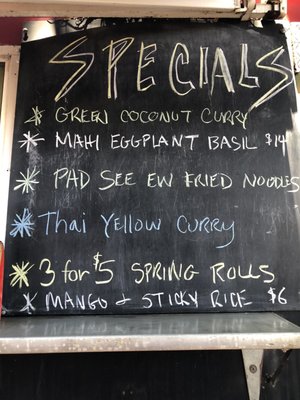 SPECIALS
GREEN COCONUT CURRY
MAHI EGGPLANT BASIL $14
PAD SEE EW FRIED NOODLES
Thai Yellow Curry
3 for $5 SPRING ROLLS
MANGO + STICKY RICE $6